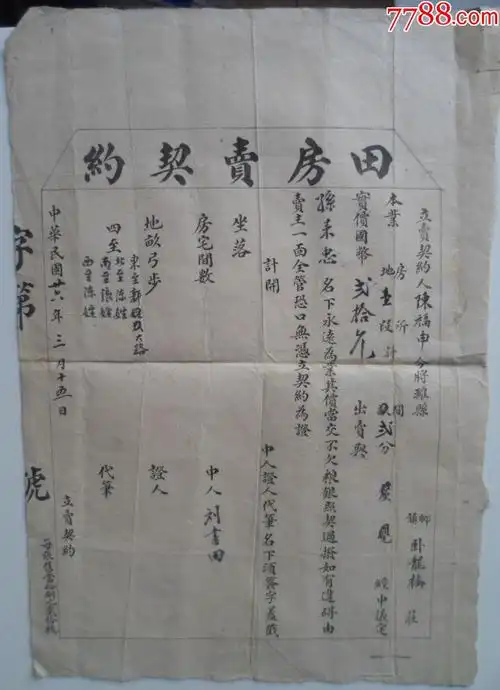 7788.com
田房賣契約
立賣契約人陳福申今將雞縣 鄉鎮 臥龍梅莊
本業 房 所 間
地 壹 段 計 貳分
實價國幣貳拾元 出賣與
孫来忠 名下永遠為業其價當交不欠粮銀照契過撥如有違碍由
賣主一面全管恐口無憑立契約為證
計開
中人證人代筆名下須簽字蓋戳
坐落
房宅間數
地畝弓步
四至
東至
北至陳姓
南至張姓
西至陳姓
中人 刘書田
證人
代筆
立賣契約
中華民國廿六年三月十五日
字第 號